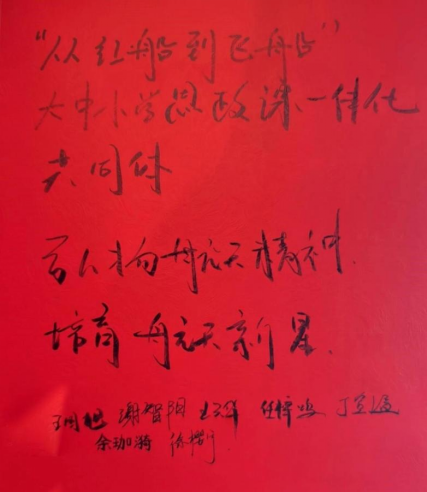 “从红船到飞船”
大中小学思政课一体化
共同体
弘扬航天精神.
培育航天新星.
谢智阳 任梓 丁
余珈漪